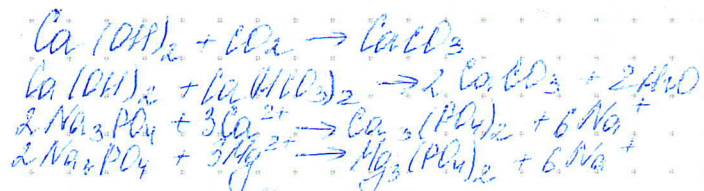 Ca(OH)₂ + CO₂ → CaCO₃
Ca(OH)₂ + Ca(HCO₃)₂ → 2CaCO₃ + 2H₂O
2Na₃PO₄ + 3Ca²⁺ → Ca₃(PO₄)₂ + 6Na⁺
2Na₃PO₄ + 3Mg²⁺ → Mg₃(PO₄)₂ + 6Na⁺